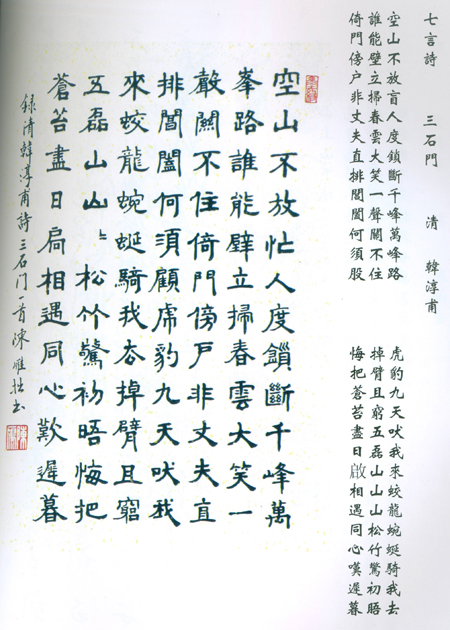 七言詩 三石門 清 韓淳甫
空山不放盲人度鎖斷千峰萬峰路
誰能壁立掃春雲大笑一聲關不住
倚門傍户非丈夫直排閶闔何須股
虎豹九天吠我來蛟龍蜿蜒騎我去
掉臂且窮五磊山山山松竹驚初晤
悔把蒼苔盡日啟相遇同心嘆遲暮
空山不放忙人度鎖斷千峰萬
峯路誰能壁立掃春雲大笑一
聲闗不住倚門傍户非丈夫直
排閶闔何須顧虎豹九天吠我
來蛟龍蜿蜒騎我去掉臂且窮
五磊山山〻松竹驚初晤悔把
蒼苔盡日扃相遇同心歎遲暮
録清韓淳甫詩三石门一首陳雁书